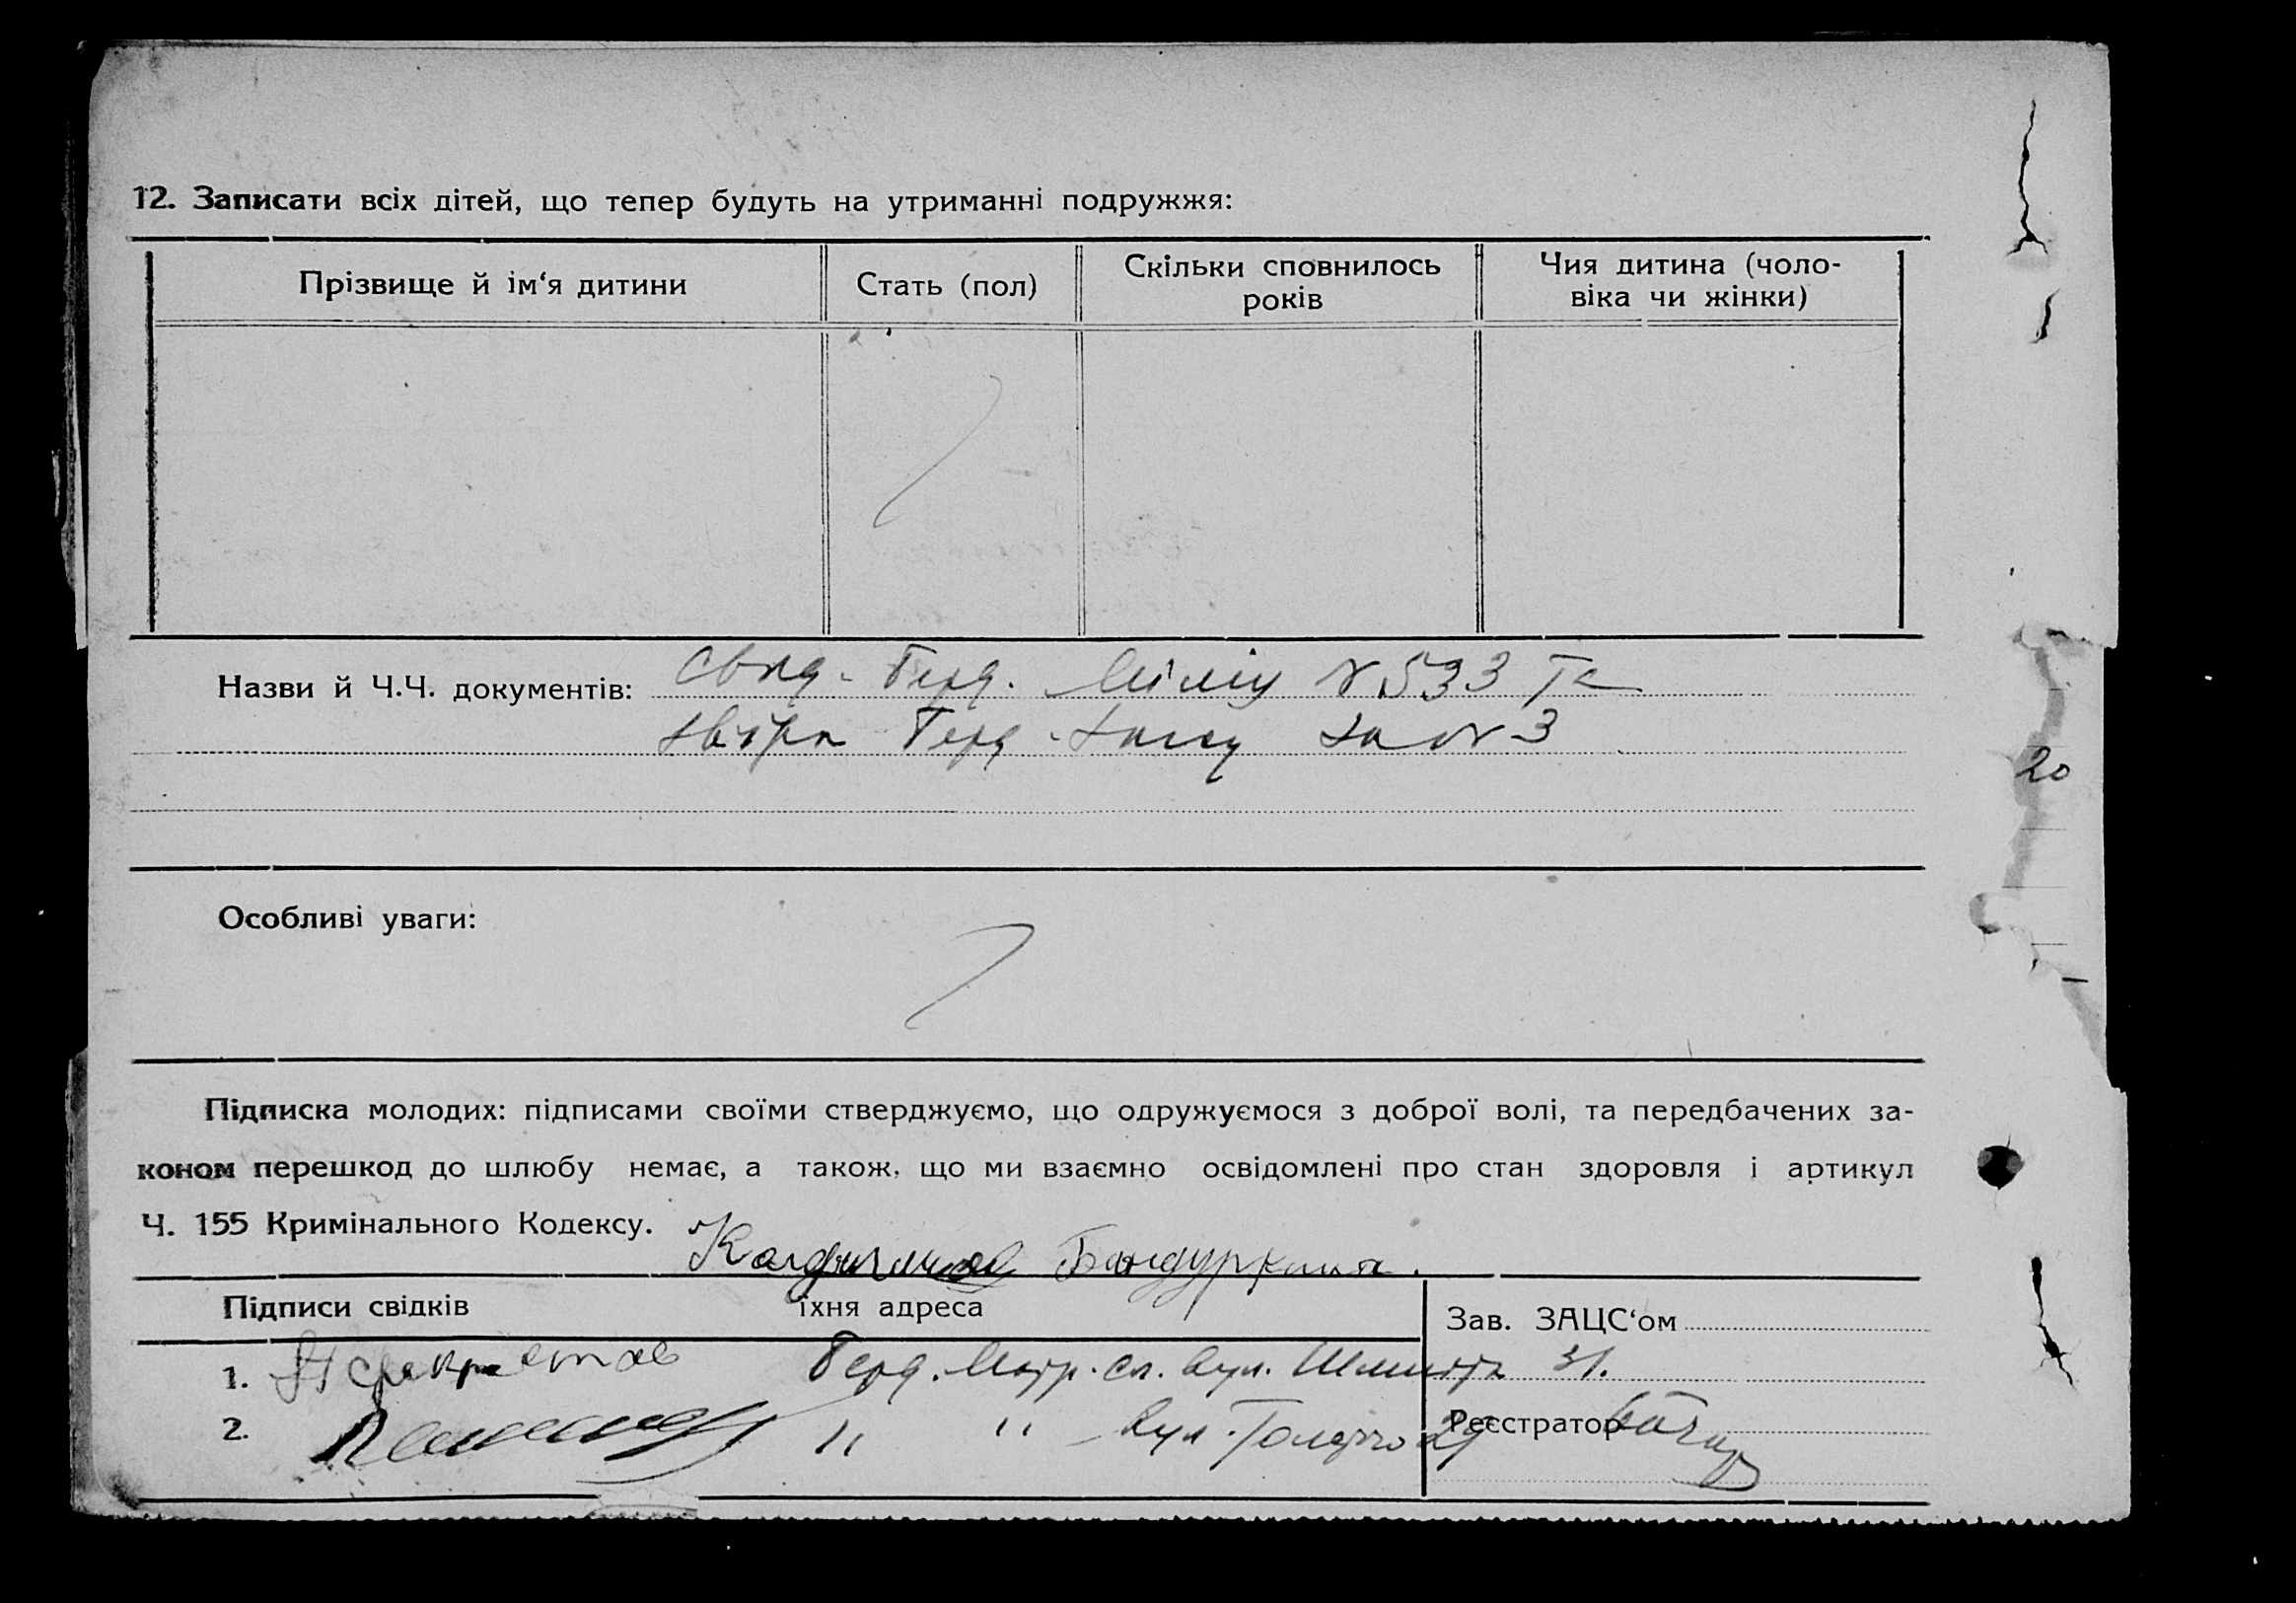 12. Записати всіх дітей, що тепер будуть на утриманні подружжя:
Прізвище й ім‘я дитини
Стать (пол)
Скільки сповнилось
років
Чия дитина (чоло-
віка чи жінки)
Назви й Ч.Ч. документів: N 533 Та
N 3
20
Особливі уваги:
Підписка молодих: підписами своїми стверджуємо, що одружуємося з доброї волі, та передбачених за-
коном перешкод до шлюбу немає, а також, що ми взаємно освідомлені про стан здоровля і артикул
Ч. 155 Кримінального Кодексу.
Бандуркина.
Підписи свідків
їхня адреса
Зав. ЗАЦС‘ом
1. Берд. вул. Шмидта 31.
2. " " вул. 29
Реєстратор